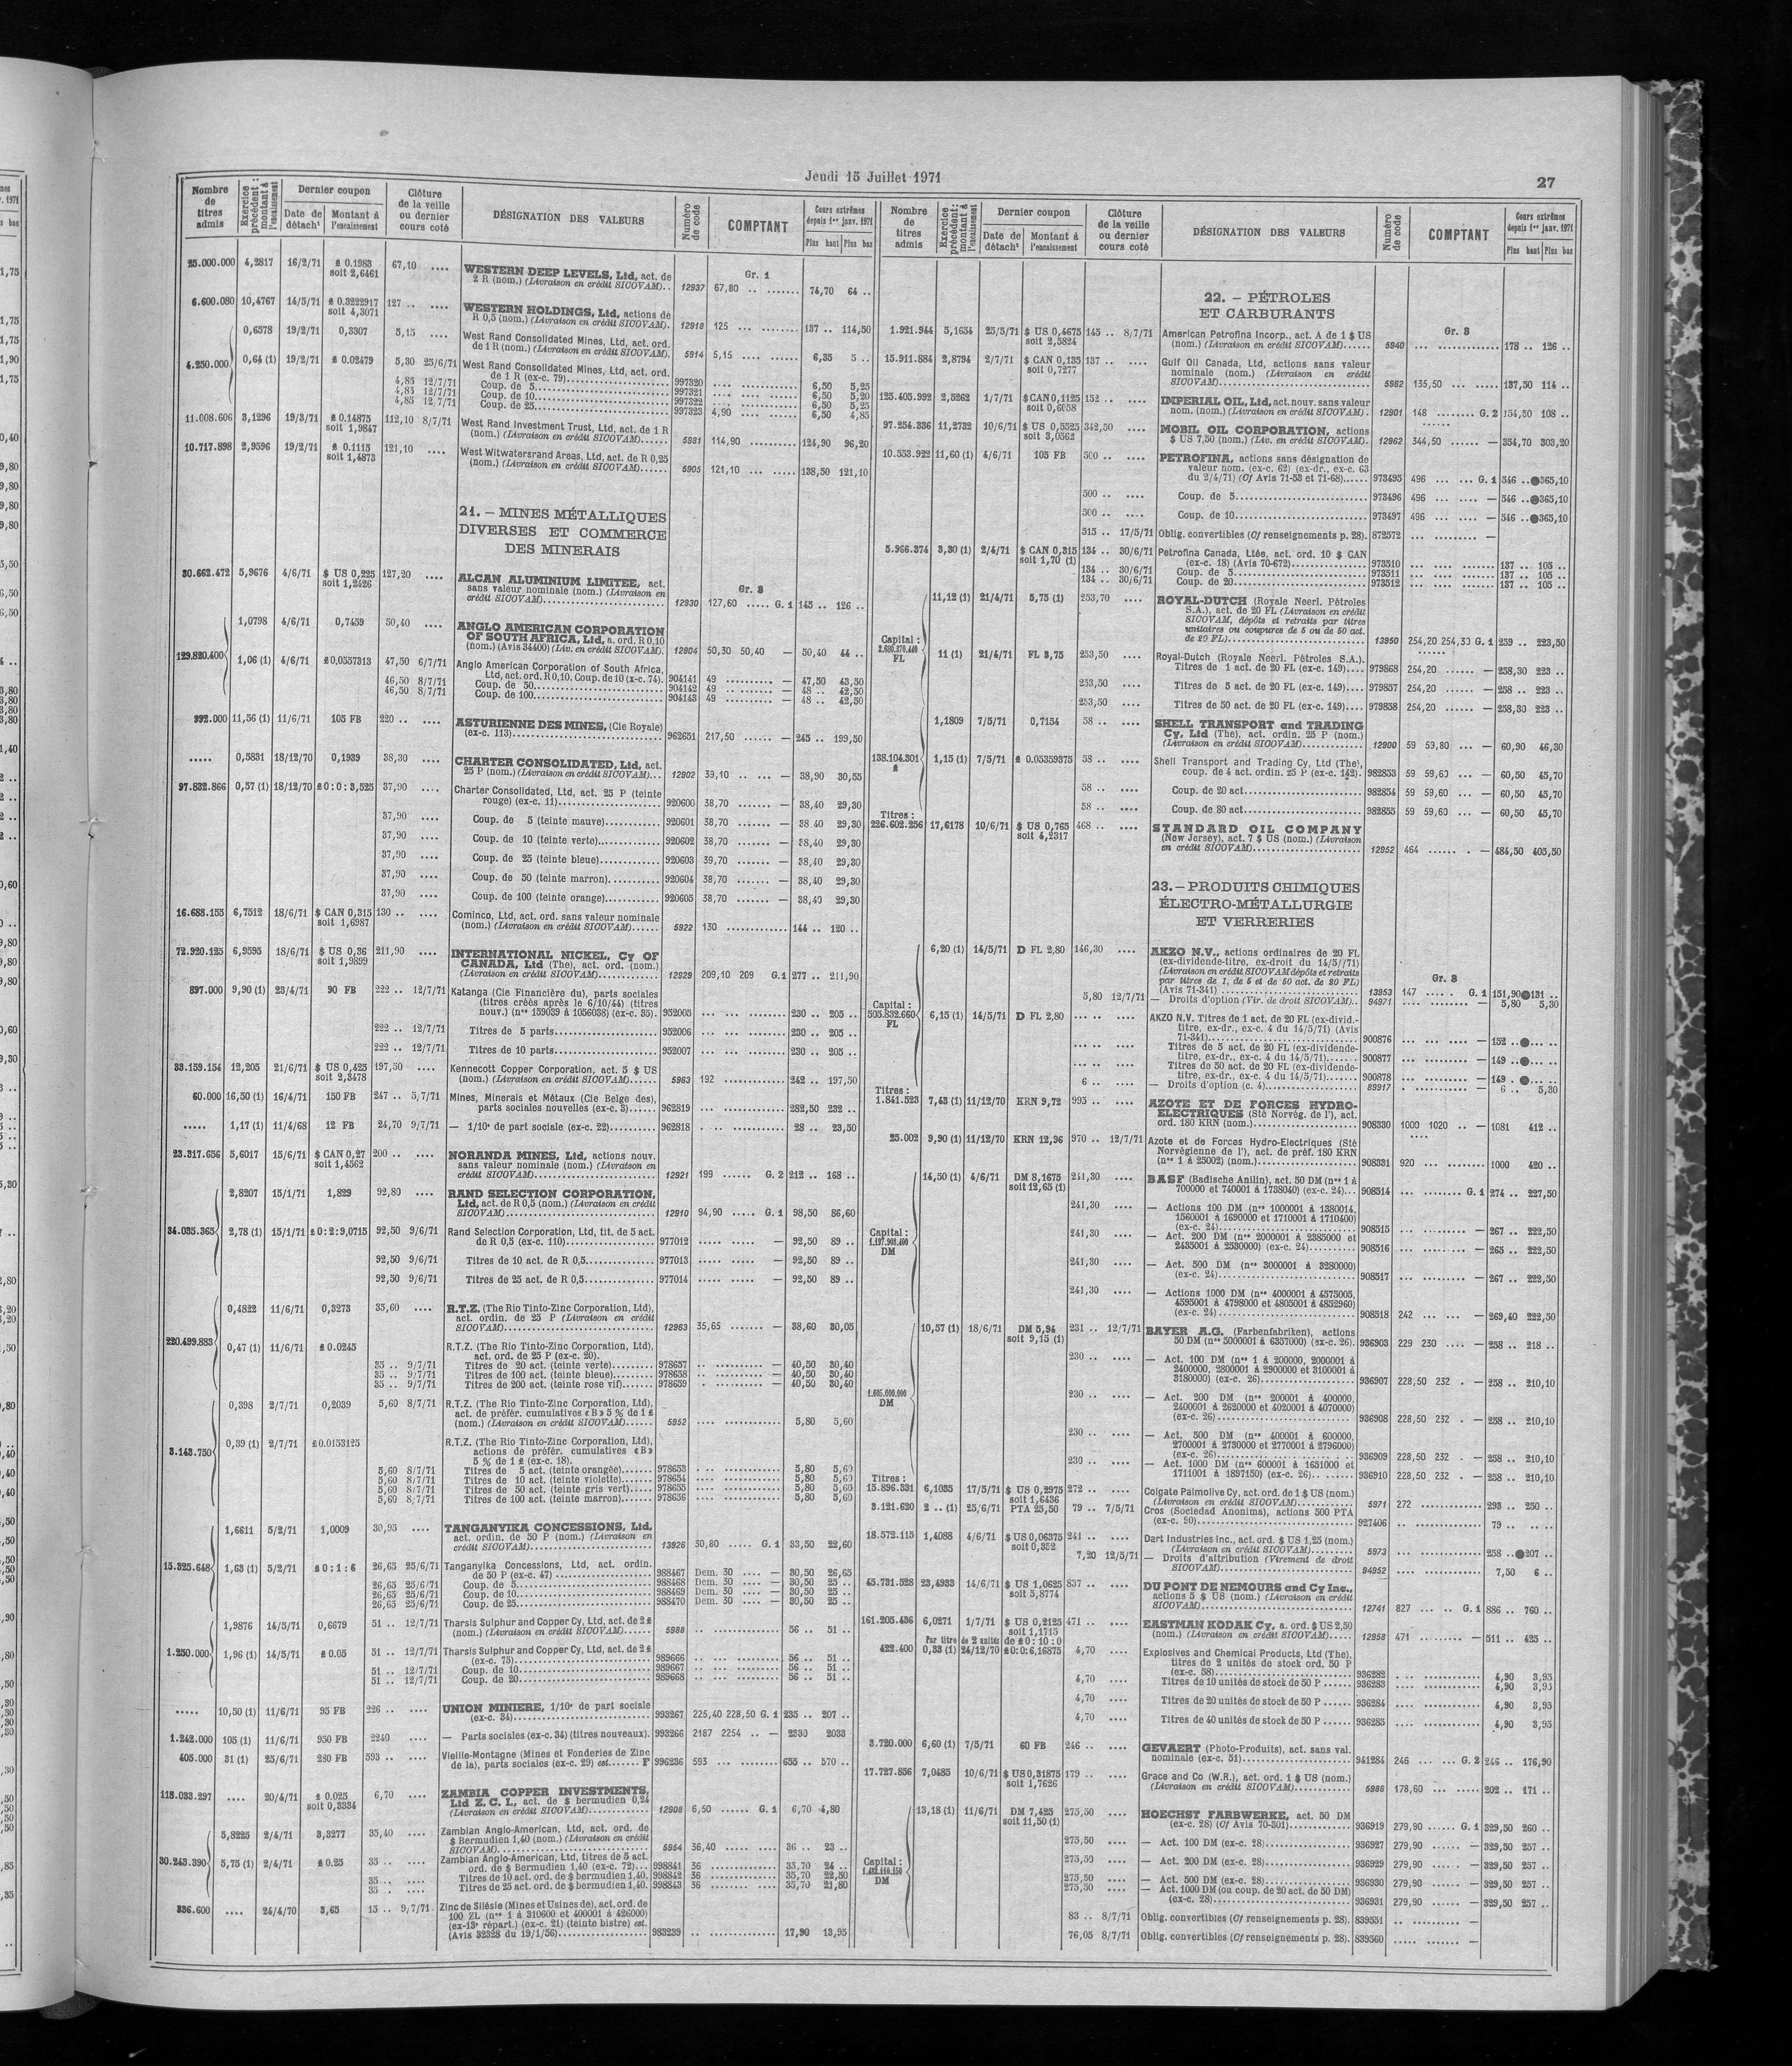 Jeudi 15 Juillet 1971
27
Nombre de titres admis
Exercice précédent : montant à l'encaissement
Dernier coupon
Date de détacht
Montant à l'encaissement
Clôture de la veille ou dernier cours coté
DÉSIGNATION DES VALEURS
Numéro de code
COMPTANT
Cours extrêmes depuis 1er janv. 1971
Plus haut Plus bas
Gr. 1
25.000.000 4,2817 16/2/71 £ 0.1983 soit 2,6461 67,10 .... WESTERN DEEP LEVELS, Ltd, act. de
2 R (nom.) (Livraison en crédit SICOVAM).. 12937 67,80 .. ....... 74,70 64 ..
6.600.080 10,4767 14/5/71 £ 0.3222917 soit 4,3071 127 .. .... WESTERN HOLDINGS, Ltd, actions de
R 0,5 (nom.) (Livraison en crédit SICOVAM). 12918 125 ... ......... 137 .. 114,50
0,6578 19/2/71 0,3307 5,15 .... West Rand Consolidated Mines, Ltd, act. ord.
de 1 R (nom.) (Livraison en crédit SICOVAM). 5914 5,15 .... ...... 6,35 5 ..
4.250.000 0,64 (1) 19/2/71 £ 0.02479 5,30 25/6/71 West Rand Consolidated Mines, Ltd, act. ord.
de 1 R (ex-c. 79) 997320 6,50 5,25
4,85 12/7/71 Coup. de 5 997321 6,50 5,20
4,85 12/7/71 Coup. de 10 997322 6,50 5,25
4,85 12/7/71 Coup. de 25 997323 4,90 6,50 4,85
11.008.606 3,1296 19/3/71 £ 0.14875 soit 1,9847 112,10 8/7/71 West Rand Investment Trust, Ltd, act. de 1 R
(nom.) (Livraison en crédit SICOVAM)...... 5981 114,90 124,90 96,20
10.717.898 2,9596 19/2/71 £ 0.1115 soit 1,4873 121,10 .... West Witwatersrand Areas, Ltd, act. de R 0,25
(nom.) (Livraison en crédit SICOVAM)...... 5905 121,10 138,50 121,10
21. – MINES MÉTALLIQUES
DIVERSES ET COMMERCE
DES MINERAIS
Gr. 3
30.662.472 5,9676 4/6/71 $ US 0,225 soit 1,2426 127,20 .... ALCAN ALUMINIUM LIMITEE, act.
sans valeur nominale (nom.) (Livraison en
crédit SICOVAM) 12930 127,60 ..... G. 1 145 .. 126 ..
1,0798 4/6/71 0,7459 50,40 .... ANGLO AMERICAN CORPORATION
OF SOUTH AFRICA, Ltd, a. ord. R 0,10
(nom.) (Avis 34400) (Liv. en crédit SICOVAM). 12904 50,30 50,40 — 50,40 44 ..
129.820.400 1,06 (1) 4/6/71 £0,0557313 47,50 6/7/71 Anglo American Corporation of South Africa,
Ltd, act. ord. R 0,10. Coup. de 10 (x-c. 74). 904141 49 — 47,50 43,50
46,50 8/7/71 Coup. de 50 904142 49 — 48 .. 42,50
46,50 8/7/71 Coup. de 100 904143 49 — 48 .. 42,50
992.000 11,56 (1) 11/6/71 105 FB 220 .. .... ASTURIENNE DES MINES, (Cie Royale)
(ex-c. 113) 962651 217,50 — 245 .. 199,50
..... 0,5831 18/12/70 0,1939 38,30 .... CHARTER CONSOLIDATED, Ltd, act.
25 P (nom.) (Livraison en crédit SICOVAM)... 12902 39,10 — 38,90 30,55
97.832.866 0,57 (1) 18/12/70 £0:0:3,525 37,90 .... Charter Consolidated, Ltd, act. 25 P (teinte
rouge) (ex-c. 11) 920600 38,70 — 38,40 29,30
37,90 .... Coup. de 5 (teinte mauve) 920601 38,70 — 38,40 29,30
37,90 .... Coup. de 10 (teinte verte) 920602 38,70 — 38,40 29,30
37,90 .... Coup. de 25 (teinte bleue) 920603 39,70 — 38,40 29,30
37,90 .... Coup. de 50 (teinte marron) 920604 38,70 — 38,40 29,30
37,90 .... Coup. de 100 (teinte orange) 920605 38,70 — 38,40 29,30
16.688.155 6,7512 18/6/71 $ CAN 0,315 soit 1,6987 130 .. .... Cominco, Ltd, act. ord. sans valeur nominale
(nom.) (Livraison en crédit SICOVAM) 5922 130 144 .. 120 ..
72.920.125 6,9595 18/6/71 $ US 0,36 soit 1,9899 211,90 .... INTERNATIONAL NICKEL, Cy OF
CANADA, Ltd (The), act. ord. (nom.)
(Livraison en crédit SICOVAM) 12929 209,10 209 G.1 277 .. 211,90
897.000 9,90 (1) 23/4/71 90 FB 222 .. 12/7/71 Katanga (Cie Financière du), parts sociales
(titres créés après le 6/10/44) (titres
nouv.) (nos 159039 à 1056038) (ex-c. 35). 952005 — 230 .. 205 ..
222 .. 12/7/71 Titres de 5 parts 952006 — 230 .. 205 ..
222 .. 12/7/71 Titres de 10 parts 952007 — 230 .. 205 ..
33.159.154 12,205 21/6/71 $ US 0,425 soit 2,3478 197,50 .... Kennecott Copper Corporation, act. 5 $ US
(nom.) (Livraison en crédit SICOVAM) 5963 192 242 .. 197,50
60.000 16,50 (1) 16/4/71 150 FB 247 .. 5/7/71 Mines, Minerais et Métaux (Cie Belge des),
parts sociales nouvelles (ex-c. 3) 962819 282,50 232 ..
..... 1,17 (1) 11/4/68 12 FB 24,70 9/7/71 — 1/10e de part sociale (ex-c. 22) 962818 28 .. 23,50
23.317.656 5,6017 15/6/71 $ CAN 0,27 soit 1,4562 200 .. .... NORANDA MINES, Ltd, actions nouv.
sans valeur nominale (nom.) (Livraison en
crédit SICOVAM) 12921 199 G. 2 212 .. 168 ..
2,8207 15/1/71 1,829 92,80 .... RAND SELECTION CORPORATION,
Ltd, act. de R 0,5 (nom.) (Livraison en crédit
SICOVAM) 12910 94,90 G. 1 98,50 86,60
34.035.365 2,78 (1) 15/1/71 £0:2:9,0715 92,50 9/6/71 Rand Selection Corporation, Ltd, tit. de 5 act.
de R 0,5 (ex-c. 110) 977012 — 92,50 89 ..
92,50 9/6/71 Titres de 10 act. de R 0,5 977013 — 92,50 89 ..
92,50 9/6/71 Titres de 25 act. de R 0,5 977014 — 92,50 89 ..
0,4822 11/6/71 0,3273 35,60 .... R.T.Z. (The Rio Tinto-Zinc Corporation, Ltd),
act. ordin. de 25 P (Livraison en crédit
SICOVAM) 12963 35,65 — 38,60 30,05
220.499.883 0,47 (1) 11/6/71 £ 0.0245 R.T.Z. (The Rio Tinto-Zinc Corporation, Ltd),
act. ord. de 25 P (ex-c. 20).
35 .. 9/7/71 Titres de 20 act. (teinte verte) 978657 — 40,50 30,40
35 .. 9/7/71 Titres de 100 act. (teinte bleue) 978658 — 40,50 30,40
35 .. 9/7/71 Titres de 200 act. (teinte rose vif) 978659 — 40,50 30,40
0,398 2/7/71 0,2039 5,60 8/7/71 R.T.Z. (The Rio Tinto-Zinc Corporation, Ltd),
act. de préfér. cumulatives « B » 5 % de 1 £
(nom.) (Livraison en crédit SICOVAM) 5952 5,80 5,60
3.143.750 0,39 (1) 2/7/71 £0.0153125 R.T.Z. (The Rio Tinto-Zinc Corporation, Ltd),
actions de préfér. cumulatives « B »
5 % de 1 £ (ex-c. 18).
5,60 8/7/71 Titres de 5 act. (teinte orangée) 978653 5,80 5,60
5,60 8/7/71 Titres de 10 act. (teinte violette) 978654 5,80 5,60
5,60 8/7/71 Titres de 50 act. (teinte gris vert) 978655 5,80 5,60
5,60 8/7/71 Titres de 100 act. (teinte marron) 978656 5,80 5,60
1,6611 5/2/71 1,0009 30,95 .... TANGANYIKA CONCESSIONS, Ltd,
act. ordin. de 50 P (nom.) (Livraison en
crédit SICOVAM) 13926 30,80 G. 1 33,50 22,60
15.325.648 1,63 (1) 5/2/71 £0:1:6 26,65 25/6/71 Tanganyika Concessions, Ltd, act. ordin.
de 50 P (ex-c. 47) 988467 Dem. 30 — 30,50 26,65
26,65 25/6/71 Coup. de 5 988468 Dem. 30 — 30,50 25 ..
26,65 25/6/71 Coup. de 10 988469 Dem. 30 — 30,50 25 ..
26,65 25/6/71 Coup. de 25 988470 Dem. 30 — 30,50 25 ..
1,9876 14/5/71 0,6679 51 .. 12/7/71 Tharsis Sulphur and Copper Cy, Ltd, act. de 2 £
(nom.) (Livraison en crédit SICOVAM) 5988 56 .. 51 ..
1.250.000 1,96 (1) 14/5/71 £ 0.05 51 .. 12/7/71 Tharsis Sulphur and Copper Cy, Ltd, act. de 2 £
(ex-c. 75) 989666 56 .. 51 ..
51 .. 12/7/71 Coup. de 10 989667 56 .. 51 ..
51 .. 12/7/71 Coup. de 20 989668 56 .. 51 ..
..... 10,50 (1) 11/6/71 95 FB 226 .. .... UNION MINIERE, 1/10e de part sociale
(ex-c. 34) 993267 225,40 228,50 G. 1 235 .. 207 ..
1.242.000 105 (1) 11/6/71 950 FB 2240 .... — Parts sociales (ex-c. 34) (titres nouveaux). 993266 2187 2254 .. — 2330 2033
405.000 31 (1) 25/6/71 280 FB 593 .. .... Vieille-Montagne (Mines et Fonderies de Zinc
de la), parts sociales (ex-c. 29) est...... F 996236 593 655 .. 570 ..
118.033.297 .... 20/4/71 £ 0.025 soit 0,3334 6,70 .... ZAMBIA COPPER INVESTMENTS,
Ltd Z. C. I., act. de $ bermudien 0,24
(Livraison en crédit SICOVAM) 12908 6,50 G. 1 6,70 4,80
5,8225 2/4/71 3,3277 35,40 .... Zambian Anglo-American, Ltd, act. ord. de
$ Bermudien 1,40 (nom.) (Livraison en crédit
SICOVAM) 5954 36,40 36 .. 23 ..
30.243.390 5,75 (1) 2/4/71 £ 0.25 35 .. .... Zambian Anglo-American, Ltd, titres de 5 act.
ord. de $ Bermudien 1,40 (ex-c. 72)... 998841 36 35,70 24 ..
35 .. .... Titres de 10 act. ord. de $ bermudien 1,40. 998842 36 35,70 22,50
35 .. .... Titres de 25 act. ord. de $ bermudien 1,40. 998843 36 35,70 21,80
336.600 .... 24/4/70 3,65 15 .. 9/7/71 Zinc de Silésie (Mines et Usines de), act. ord. de
100 ZL (nos 1 à 310600 et 400001 à 426000)
(ex-13e répart.) (ex-c. 21) (teinte bistre) est.
(Avis 32328 du 19/1/56) 983239 17,90 13,95
Nombre de titres admis
Exercice précédent : montant à l'encaissement
Dernier coupon
Date de détacht
Montant à l'encaissement
Clôture de la veille ou dernier cours coté
DÉSIGNATION DES VALEURS
Numéro de code
COMPTANT
Cours extrêmes depuis 1er janv. 1971
Plus haut Plus bas
22. – PÉTROLES
ET CARBURANTS
Gr. 3
1.921.944 5,1634 25/5/71 $ US 0,4675 soit 2,5824 145 .. 8/7/71 American Petrofina Incorp., act. A de 1 $ US
(nom.) (Livraison en crédit SICOVAM) 5940 178 .. 126 ..
15.911.884 2,8794 2/7/71 $ CAN 0,135 soit 0,7277 137 .. .... Gulf Oil Canada, Ltd, actions sans valeur
nominale (nom.) (Livraison en crédit
SICOVAM) 5962 135,50 137,50 114 ..
125.405.992 2,5262 1/7/71 $ CAN 0,1125 soit 0,6058 152 .. .... IMPERIAL OIL, Ltd, act. nouv. sans valeur
nom. (nom.) (Livraison en crédit SICOVAM). 12901 148 G. 2 154,50 108 ..
97.254.336 11,2732 10/6/71 $ US 0,5525 soit 3,0562 342,50 .... MOBIL OIL CORPORATION, actions
$ US 7,50 (nom.) (Liv. en crédit SICOVAM). 12962 344,50 — 354,70 303,20
10.553.922 11,60 (1) 4/6/71 105 FB 500 .. .... PETROFINA, actions sans désignation de
valeur nom. (ex-c. 62) (ex-dr., ex-c. 63
du 2/4/71) (Cf Avis 71-53 et 71-68) 973495 496 G. 1 546 ..●365,10
500 .. .... Coup. de 5 973496 496 — 546 ..●365,10
500 .. .... Coup. de 10 973497 496 — 546 ..●365,10
515 .. 17/5/71 Oblig. convertibles (Cf renseignements p. 28). 872572 —
5.966.374 3,30 (1) 2/4/71 $ CAN 0,315 soit 1,70 (1) 134 .. 30/6/71 Petrofina Canada, Ltée, act. ord. 10 $ CAN
(ex-c. 18) (Avis 70-672) 973510 137 .. 105 ..
134 .. 30/6/71 Coup. de 5 973511 137 .. 105 ..
134 .. 30/6/71 Coup. de 20 973512 137 .. 105 ..
11,12 (1) 21/4/71 5,75 (1) 253,70 .... ROYAL-DUTCH (Royale Neerl. Pétroles
S.A.), act. de 20 FL (Livraison en crédit
SICOVAM, dépôts et retraits par titres
unitaires ou coupures de 5 ou de 50 act.
de 20 FL) 13950 254,20 254,30 G. 1 259 .. 223,50
Capital : 2.680.370.440 FL 11 (1) 21/4/71 FL 3,75 253,50 .... Royal-Dutch (Royale Neerl. Pétroles S.A.).
Titres de 1 act. de 20 FL (ex-c. 149) 979868 254,20 — 258,30 223 ..
253,50 Titres de 5 act. de 20 FL (ex-c. 149) 979857 254,20 — 258 .. 223 ..
253,50 Titres de 50 act. de 20 FL (ex-c. 149) 979858 254,20 — 258,30 223 ..
1,1809 7/5/71 0,7154 58 .. .... SHELL TRANSPORT and TRADING
Cy, Ltd (The), act. ordin. 25 P (nom.)
(Livraison en crédit SICOVAM) 12900 59 59,80 — 60,90 46,30
138.104.301 £ 1,15 (1) 7/5/71 £ 0.05359375 58 .. .... Shell Transport and Trading Cy, Ltd (The),
coup. de 4 act. ordin. 25 P (ex-c. 142). 982853 59 59,60 — 60,50 45,70
58 .. .... Coup. de 20 act. 982854 59 59,60 — 60,50 45,70
58 .. .... Coup. de 80 act. 982855 59 59,60 — 60,50 45,70
Titres : 226.602.256 17,6178 10/6/71 $ US 0,765 soit 4,2317 468 .. .... STANDARD OIL COMPANY
(New Jersey), act. 7 $ US (nom.) (Livraison
en crédit SICOVAM) 12952 464 — 484,50 405,50
23. – PRODUITS CHIMIQUES
ÉLECTRO-MÉTALLURGIE
ET VERRERIES
Gr. 3
6,20 (1) 14/5/71 D FL 2,80 146,30 .... AKZO N.V., actions ordinaires de 20 FL
(ex-dividende-titre, ex-droit du 14/5//71)
(Livraison en crédit SICOVAM dépôts et retraits
par titres de 1, de 5 et de 50 act. de 20 FL)
(Avis 71-341) 13953 147 G. 1 151,90●131 ..
5,80 12/7/71 — Droits d'option (Vir. de droit SICOVAM).. 94971 5,80 5,30
Capital : 505.832.660 FL 6,15 (1) 14/5/71 D FL 2,80 AKZO N.V. Titres de 1 act. de 20 FL (ex-divid.-
titre, ex-dr., ex-c. 4 du 14/5/71) (Avis
71-341) 900876 — 152 ..●
Titres de 5 act. de 20 FL (ex-dividende-
titre, ex-dr., ex-c. 4 du 14/5/71) 900877 — 149 ..●
Titres de 50 act. de 20 FL (ex-dividende-
titre, ex-dr., ex-c. 4 du 14/5/71) 900878 — 149 .●
6 .. .... — Droits d'option (c. 4) 89917 6 .. 5,30
Titres : 1.841.523 7,43 (1) 11/12/70 KRN 9,72 993 .. .... AZOTE ET DE FORCES HYDRO-
ELECTRIQUES (Sté Norvég. de l'), act.
ord. 180 KRN (nom.) 908330 1000 1020 .. — 1081 412 ..
25.002 9,90 (1) 11/12/70 KRN 12,96 970 .. 12/7/71 Azote et de Forces Hydro-Electriques (Sté
Norvégienne de l'), act. de préf. 180 KRN
(nos 1 à 25002) (nom.) 908331 920 1000 420 ..
14,50 (1) 4/6/71 DM 8,1675 soit 12,65 (1) 241,30 .... BASF (Badische Anilin), act. 50 DM (nos 1 à
700000 et 740001 à 1738040) (ex-c. 24) 908514 G. 1 274 .. 227,50
241,30 .... — Actions 100 DM (nos 1000001 à 1380014,
1560001 à 1690000 et 1710001 à 1710400)
(ex-c. 24) 908515 — 267 .. 222,50
Capital : 1.197.903.400 DM 241,30 .... — Act. 200 DM (nos 2000001 à 2385000 et
2435001 à 2530000) (ex-c. 24) 908516 — 265 .. 222,50
241,30 .... — Act. 500 DM (nos 3000001 à 3280000)
(ex-c. 24) 908517 — 267 .. 222,50
241,30 .... — Actions 1000 DM (nos 4000001 à 4575005,
4595001 à 4798000 et 4805001 à 4852960)
(ex-c. 24) 908518 242 — 269,40 222,50
10,57 (1) 18/6/71 DM 5,94 soit 9,15 (1) 231 .. 12/7/71 BAYER A.G. (Farbenfabriken), actions
50 DM (nos 5000001 à 6357000) (ex-c. 26). 936903 229 230 — 258 .. 218 ..
230 .. .... — Act. 100 DM (nos 1 à 200000, 2000001 à
2400000, 2800001 à 2900000 et 3100001 à
3180000) (ex-c. 26) 936907 228,50 232 . — 258 .. 210,10
1.605.000.000 DM 230 .. .... — Act. 200 DM (nos 200001 à 400000,
2400001 à 2620000 et 4020001 à 4070000)
(ex-c. 26) 936908 228,50 232 . — 258 .. 210,10
230 .. .... — Act. 500 DM (nos 400001 à 600000,
2700001 à 2730000 et 2770001 à 2796000)
(ex-c. 26) 936909 228,50 232 . — 258 .. 210,10
230 .. .... — Act. 1000 DM (nos 600001 à 1651000 et
1711001 à 1897150) (ex-c. 26) 936910 228,50 232 . — 258 .. 210,10
Titres : 15.896.331 6,1035 17/5/71 $ US 0,2975 soit 1,6436 272 .. .... Colgate Palmolive Cy, act. ord. de 1 $ US (nom.)
(Livraison en crédit SICOVAM) 5971 272 293 .. 250 ..
3.121.620 2 .. (1) 25/6/71 PTA 25,50 79 .. 7/5/71 Cros (Sociedad Anonima), actions 500 PTA
(ex-c. 90) 927406 79 .. .. ..
18.572.115 1,4088 4/6/71 $ US 0,06375 soit 0,352 241 .. .... Dart Industries Inc., act. ord. $ US 1,25 (nom.)
(Livraison en crédit SICOVAM) 5973 258 ..●207 ..
7,20 12/5/71 — Droits d'attribution (Virement de droit
SICOVAM) 94952 7,50 6 ..
45.731.528 23,4933 14/6/71 $ US 1,0625 soit 5,8774 837 .. .... DU PONT DE NEMOURS and Cy Inc.,
actions 5 $ US (nom.) (Livraison en crédit
SICOVAM) 12741 827 G. 1 886 .. 760 ..
161.205.436 6,0271 1/7/71 $ US 0,2125 soit 1,1715 471 .. .... EASTMAN KODAK Cy, a. ord. $ US 2,50
(nom.) (Livraison en crédit SICOVAM) 12958 471 — 511 .. 425 ..
Par titre de 2 unités de £0:10:0
422.400 0,33 (1) 24/12/70 £0:0:6,16875 4,70 Explosives and Chemical Products, Ltd (The),
titres de 2 unités de stock ord. 50 P
(ex-c. 58) 936282 4,90 3,95
4,70 Titres de 10 unités de stock de 50 P 936283 4,90 3,95
4,70 Titres de 20 unités de stock de 50 P 936284 4,90 3,95
4,70 Titres de 40 unités de stock de 50 P 936285 4,90 3,95
3.720.000 6,60 (1) 7/5/71 60 FB 246 .. .... GEVAERT (Photo-Produits), act. sans val.
nominale (ex-c. 51) 941284 246 G. 2 246 .. 176,90
17.727.856 7,0485 10/6/71 $ US 0,31875 soit 1,7626 179 .. .... Grace and Co (W.R.), act. ord. 1 $ US (nom.)
(Livraison en crédit SICOVAM) 5986 178,60 202 .. 171 ..
13,18 (1) 11/6/71 DM 7,425 soit 11,50 (1) 275,50 .... HOECHST FARBWERKE, act. 50 DM
(ex-c. 28) (Cf Avis 70-301) 936919 279,90 G. 1 329,50 260 ..
275,50 .... — Act. 100 DM (ex-c. 28) 936927 279,90 — 329,50 257 ..
Capital : 1.482.140.150 DM 275,50 .... — Act. 200 DM (ex-c. 28) 936929 279,90 — 329,50 257 ..
275,50 .... — Act. 500 DM (ex-c. 28) 936930 279,90 — 329,50 257 ..
275,50 .... — Act. 1000 DM (ou coup. de 20 act. de 50 DM)
(ex-c. 28) 936931 279,90 — 329,50 257 ..
83 .. 8/7/71 Oblig. convertibles (Cf renseignements p. 28). 839551 —
76,05 8/7/71 Oblig. convertibles (Cf renseignements p. 28). 839560 —